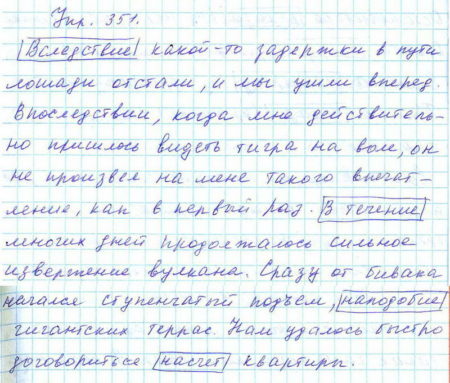 Упр. 351.
Вследствие какой-то задержки в пути
лошади отстали, и мы ушли вперед.
Впоследствии, когда мне действитель-
но пришлось видеть тигра на воле, он
не произвел на меня такого впечат-
ление, как в первый раз. В течение
многих дней продолжалось сильное
извержение вулкана. Сразу от бивака
начался ступенчатый подъём, наподобие
гигантских террас. Нам удалось быстро
договориться насчёт квартиры.